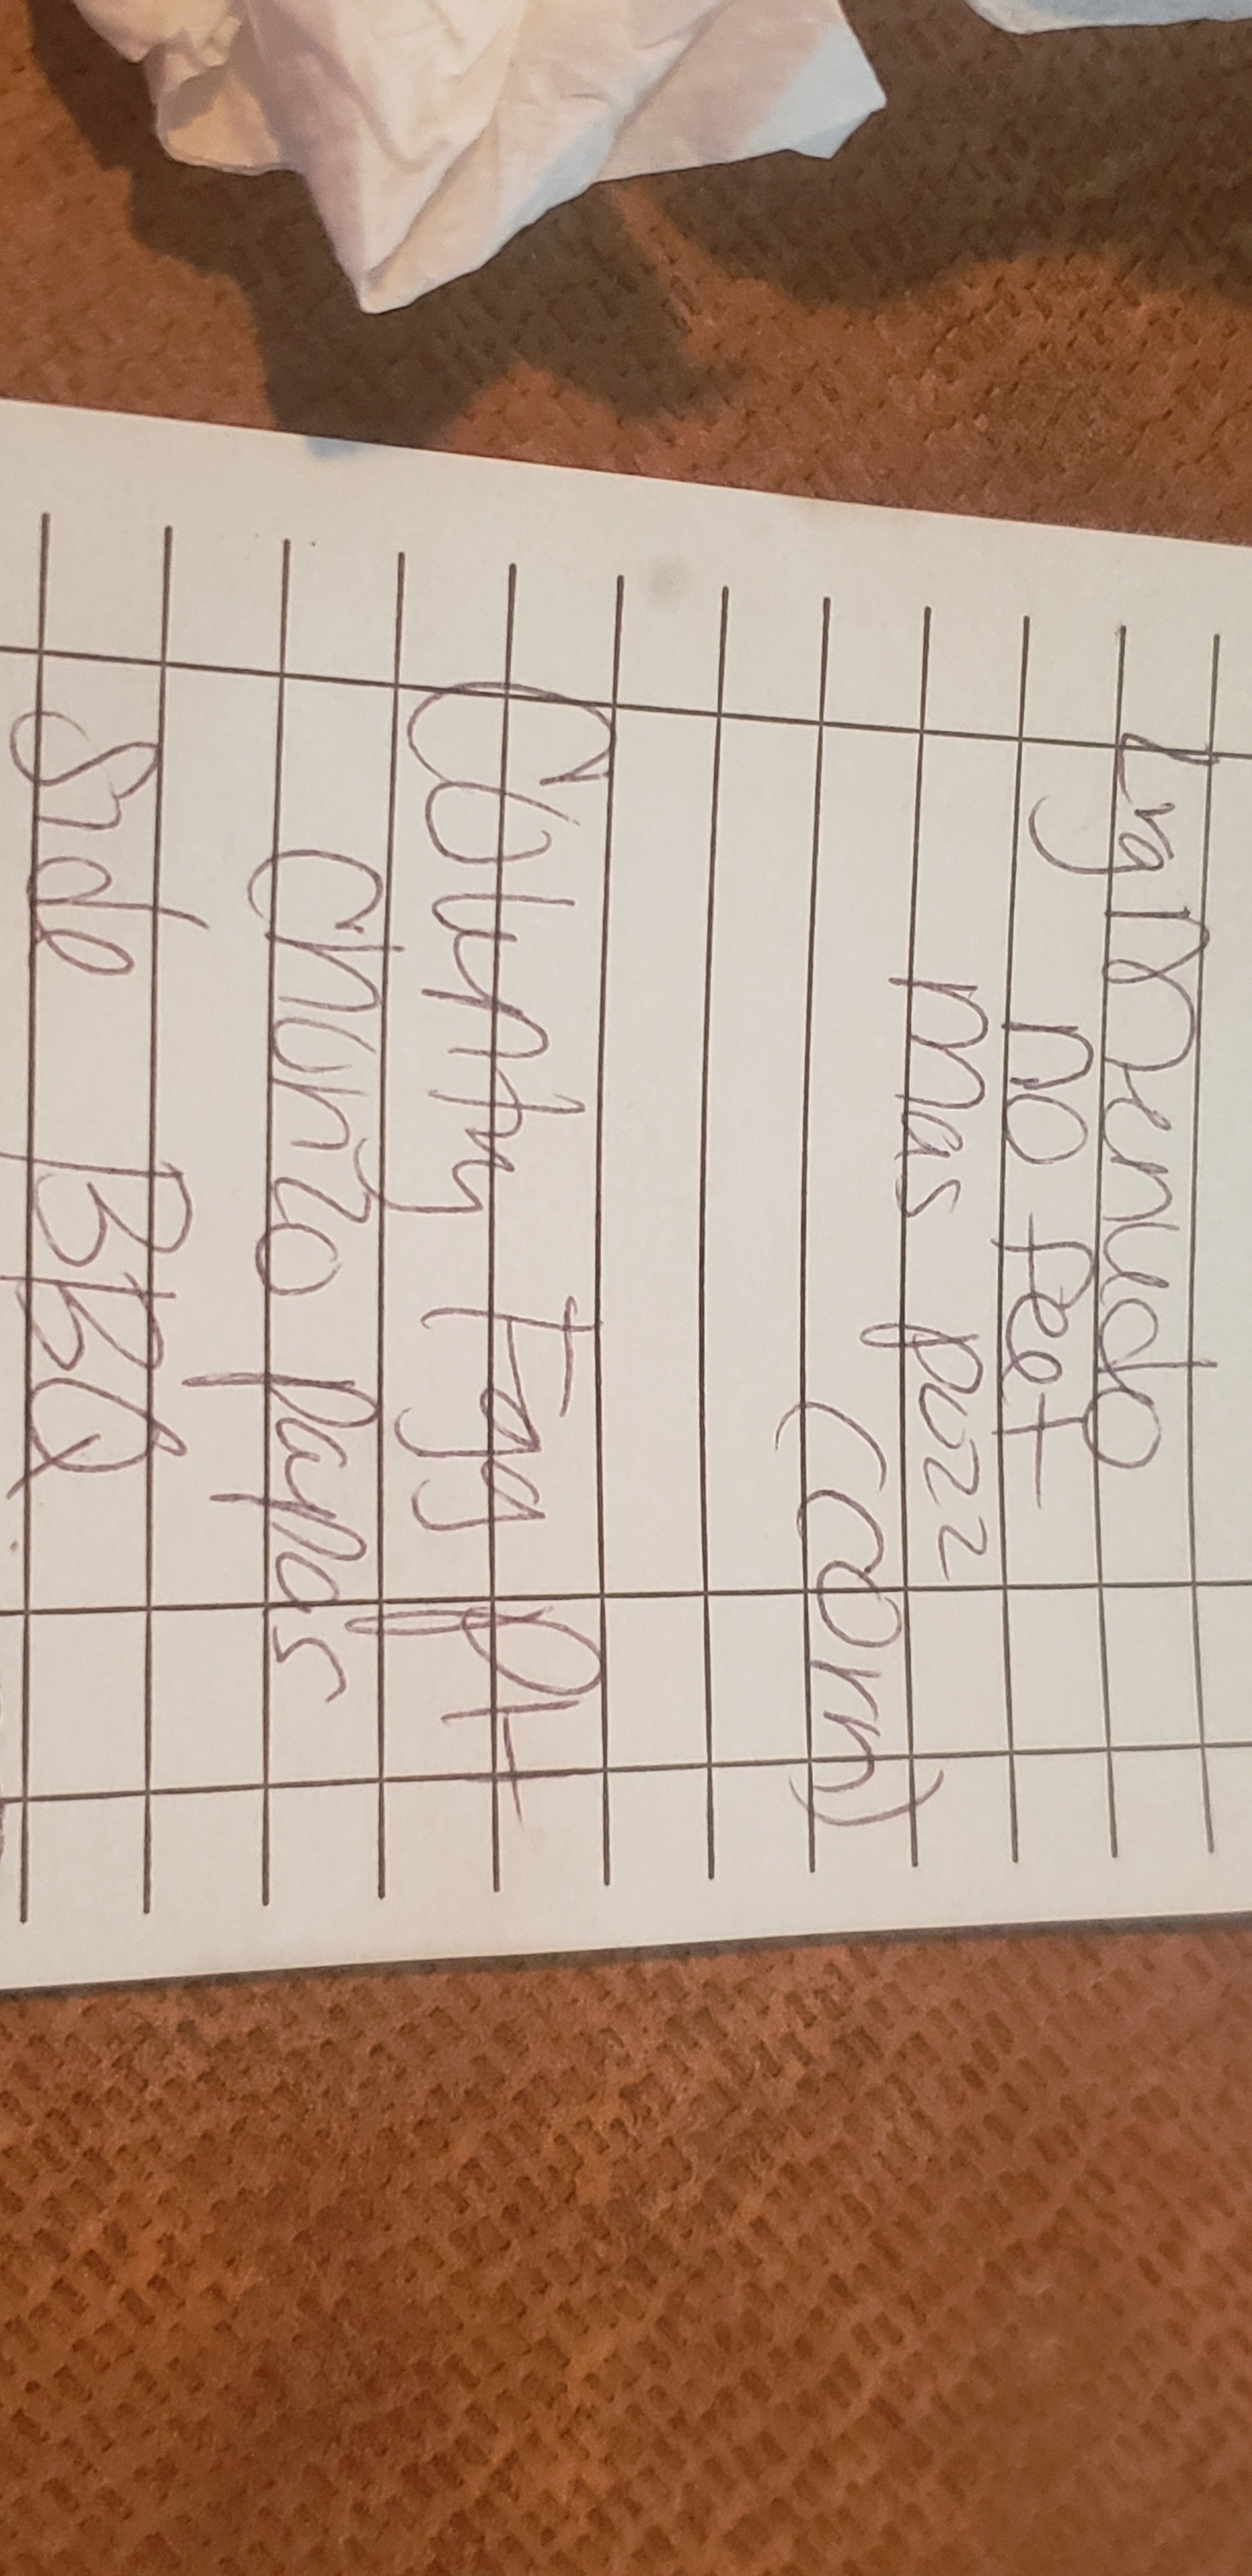 Lrg Menudo
no feet
mas pozz
(corn)
Country Egg Plt
Chorizo papas
Side BBQ